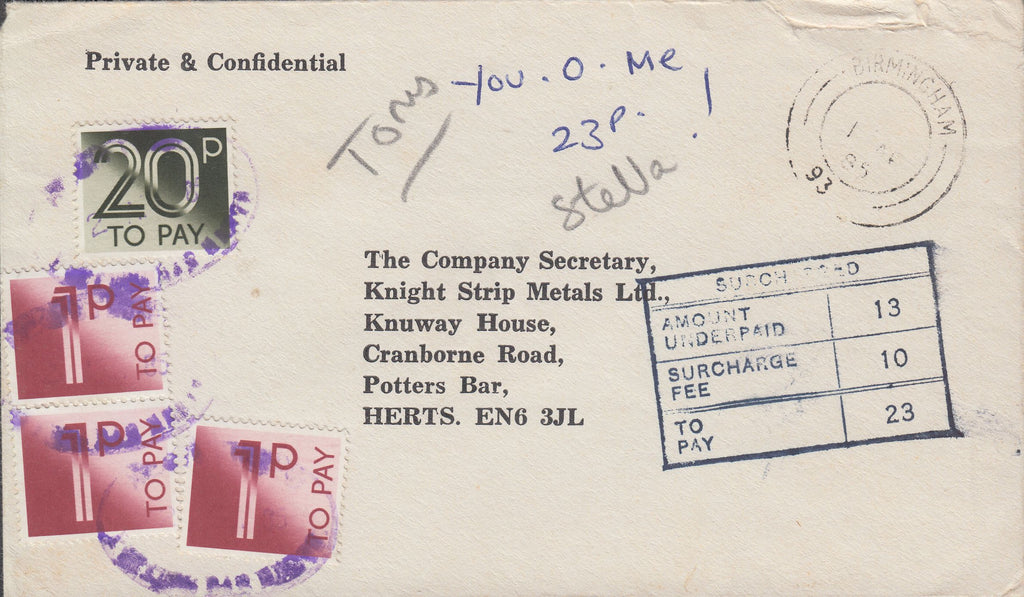 Private & Confidential
You . O . Me
23p. !
Stella
BIRMINGHAM
93
20P
TO PAY
1P
TO PAY
1P
TO PAY
1P
TO PAY
The Company Secretary,
Knight Strip Metals Ltd.,
Knuway House,
Cranborne Road,
Potters Bar,
HERTS. EN6 3JL
SURCHARGED
AMOUNT UNDERPAID 13
SURCHARGE FEE 10
TO PAY 23